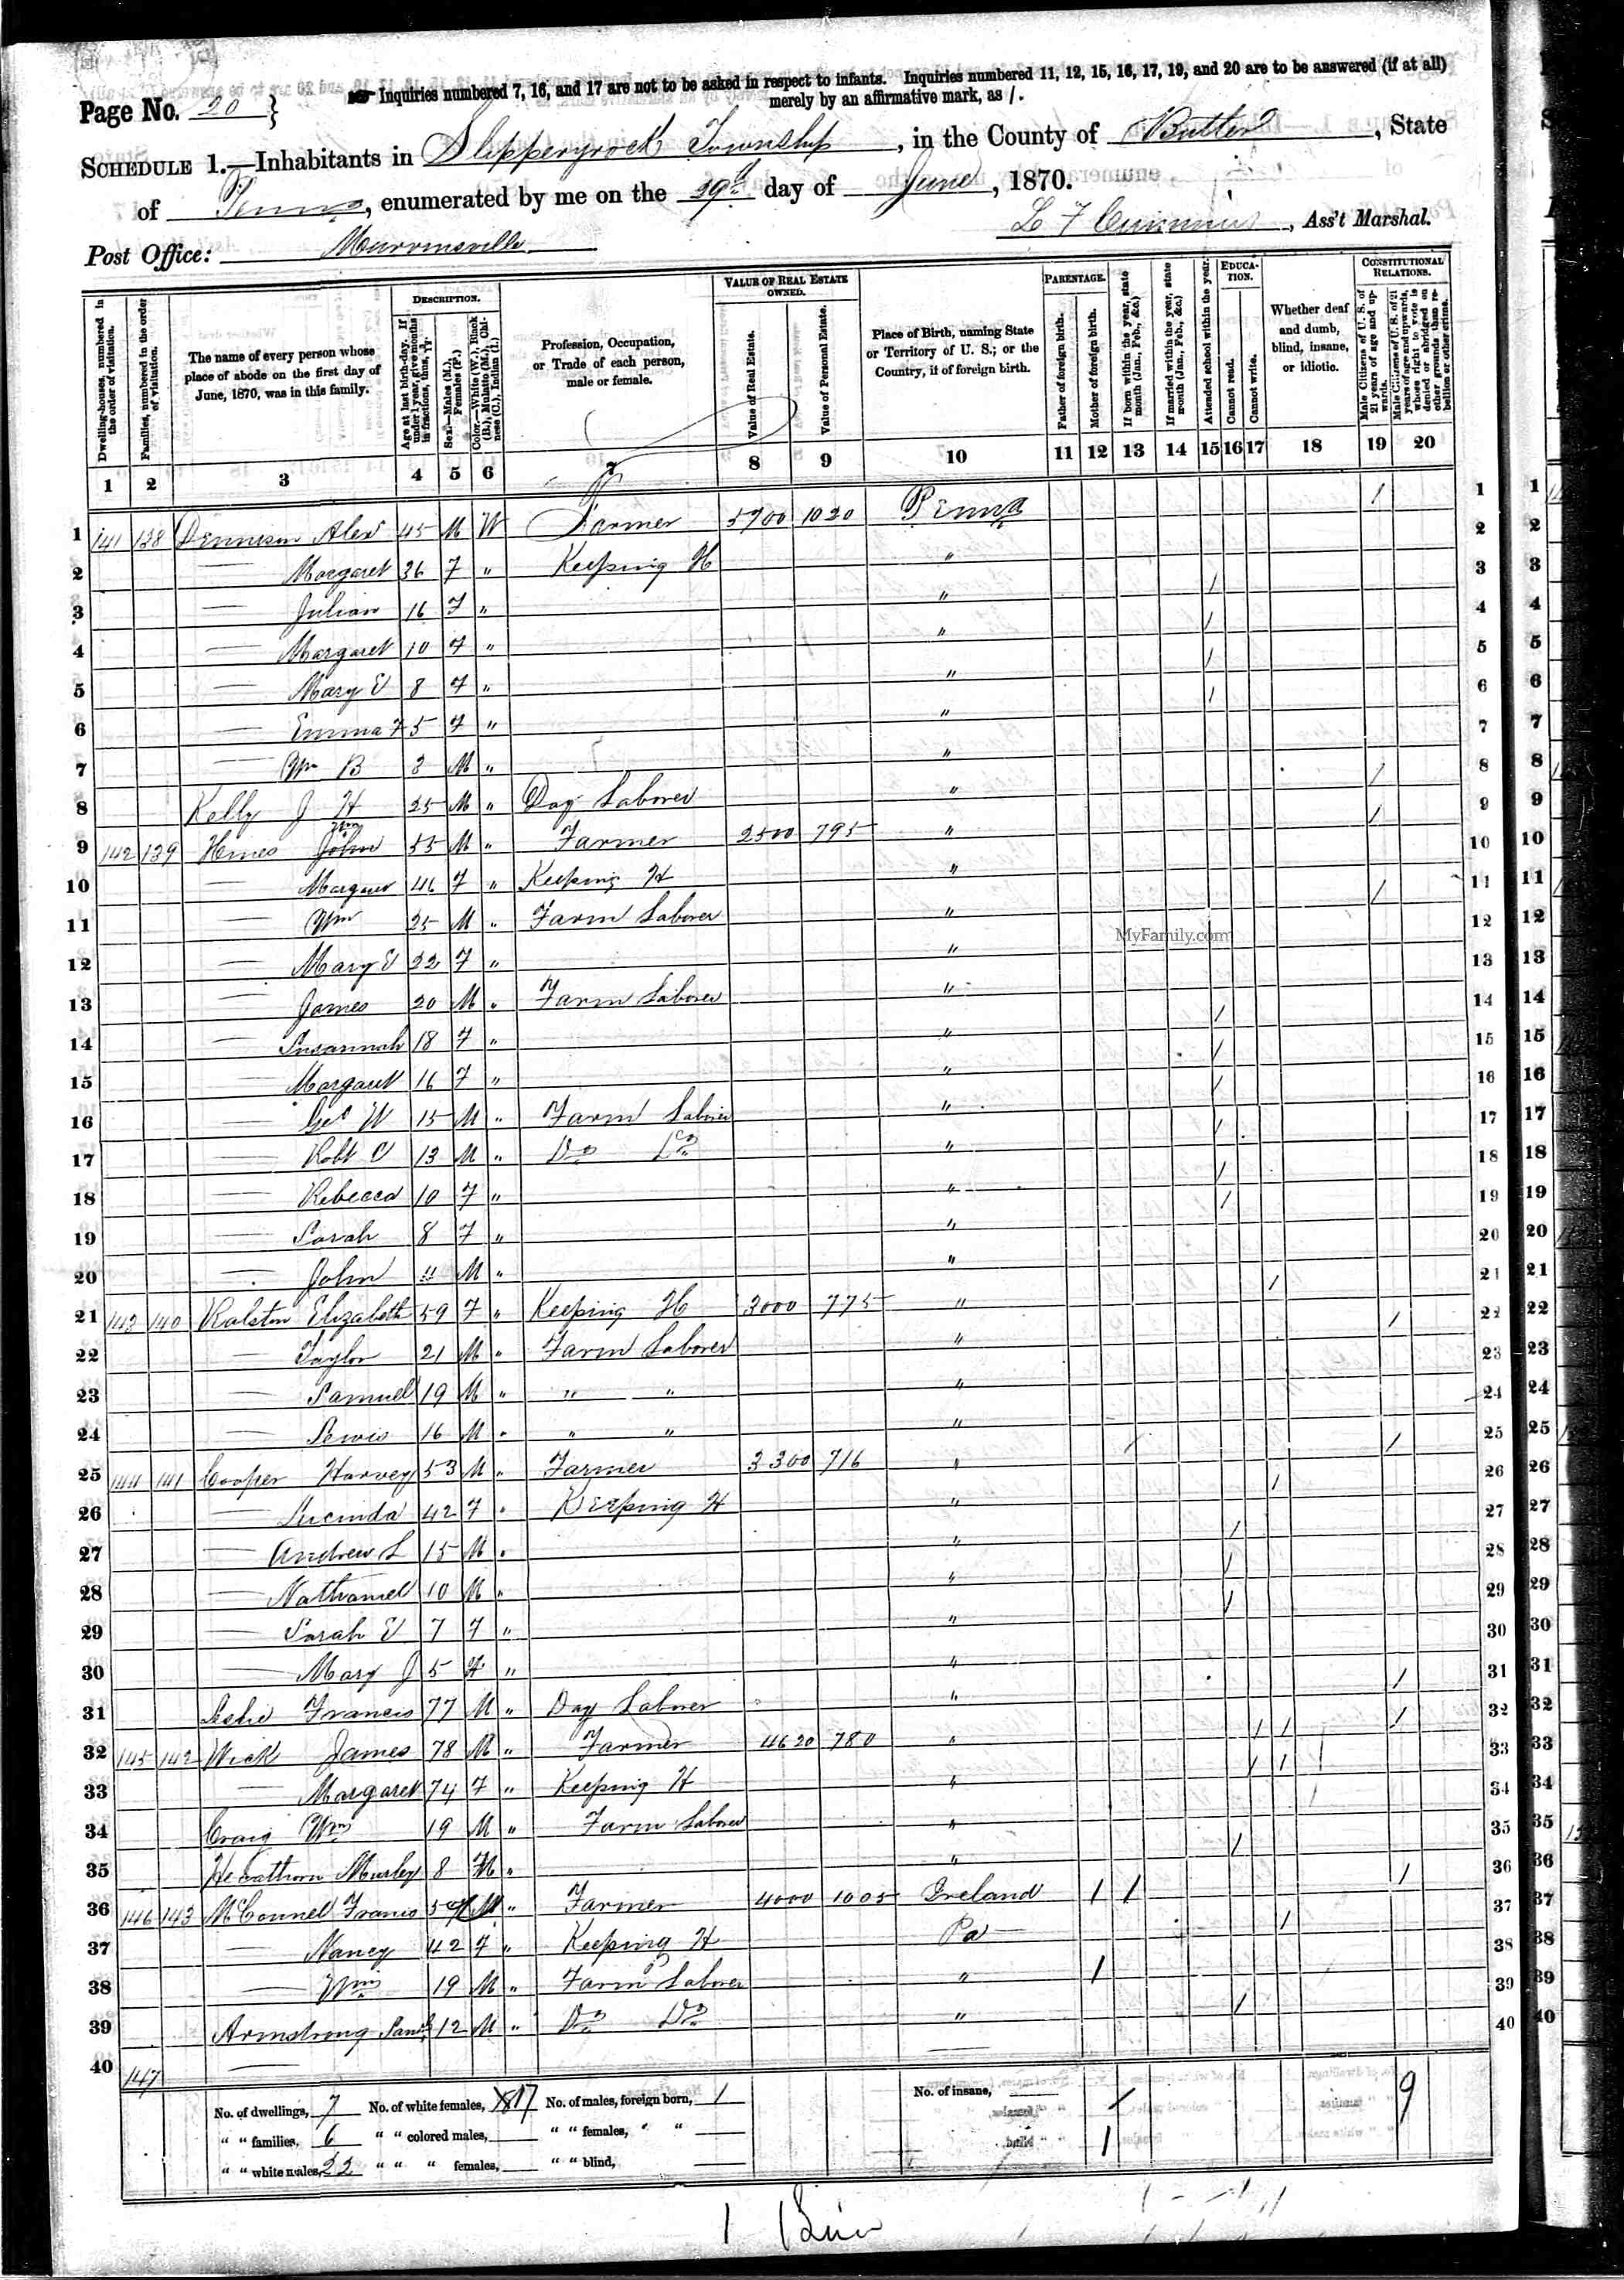 Inquiries numbered 7, 16, and 17 are not to be asked in respect to infants. Inquiries numbered 11, 12, 15, 16, 17, 19, and 20 are to be answered (if at all)
merely by an affirmative mark, as /.
Page No. 20
SCHEDULE 1.—Inhabitants in Slipperyrock Township, in the County of Butler, State
of Penna, enumerated by me on the 29th day of June, 1870.
Post Office: Murrinsville
L F , Ass't Marshal.
Dwelling-houses, numbered in the order of visitation.
Families, numbered in the order of visitation.
The name of every person whose place of abode on the first day of June, 1870, was in this family.
DESCRIPTION.
Age at last birth-day. If under 1 year, give months in fractions, thus,
Sex.—Males (M.), Females (F.)
Color.—White (W.), Black (B.), Mulatto (M.), Chinese (C.), Indian (I.)
Profession, Occupation, or Trade of each person, male or female.
VALUE OF REAL ESTATE OWNED.
Value of Real Estate.
Value of Personal Estate.
Place of Birth, naming State or Territory of U. S.; or the Country, if of foreign birth.
PARENTAGE.
Father of foreign birth.
Mother of foreign birth.
If born within the year, state month (Jan., Feb., &c.)
If married within the year, state month (Jan., Feb., &c.)
Attended school within the year.
EDUCATION.
Cannot read.
Cannot write.
Whether deaf and dumb, blind, insane, or idiotic.
CONSTITUTIONAL RELATIONS.
Male Citizens of U. S. of 21 years of age and upwards.
Male Citizens of U. S. of 21 years of age and upwards, whose right to vote is denied or abridged on other grounds than rebellion or other crime.
1 2 3 4 5 6 7 8 9 10 11 12 13 14 15 16 17 18 19 20
1 141 138 Dennison Alex 45 M W Farmer 5700 1020 Penna / 1
2 — Margaret 36 F " Keeping H " 2
3 — Julian 16 F " " / 3
4 — Margaret 10 F " " / 4
5 — Mary E 8 F " " / 5
6 — Emma F 5 F " " / 6
7 — Wm B 3 M " " 7
8 Kelly J H 25 M " Day Laborer " / 8
9 142 139 Hines Wm John 55 M " Farmer 2500 795 " / 9
10 — Margaret 46 F " Keeping H " 10
11 — Wm 25 M " Farm Laborer " / 11
12 — Mary E 22 F " " 12
13 — James 20 M " Farm Laborer " 13
14 — Susannah 18 F " " / 14
15 — Margaret 16 F " " / 15
16 — Geo W 15 M " Farm Laborer " / 16
17 — Robt C 13 M " Do Do " / 17
18 — Rebecca 10 F " " / 18
19 — Sarah 8 F " " / 19
20 — John M " " 20
21 143 140 Ralston Elizabeth 59 F " Keeping H 3000 775 " / 21
22 — Taylor 21 M " Farm Laborer " / 22
23 — Samuel 19 M " " " " 23
24 — Lewis 16 M " " " " 24
25 144 141 Cooper Harvey 53 M " Farmer 3300 716 " / / 25
26 — Lucinda 42 F " Keeping H " / 26
27 — Andrew L 15 M " " / 27
28 — Nathaniel 10 M " " / 28
29 — Sarah E 7 F " " / 29
30 — Mary J 5 F " " 30
31 Leslie Francis 77 M " Day Laborer " / 31
32 145 142 Wick James 78 M " Farmer 4620 780 " / / / 32
33 — Margaret 74 F " Keeping H " / / 33
34 Craig Wm 19 M " Farm Laborer " 34
35 8 " " / 35
36 146 143 McConnell Francis M " Farmer 4000 1005 Ireland / / / 36
37 — Nancy 42 F " Keeping H Pa / 37
38 — Wm 19 M " Farm Laborer " / 38
39 Armstrong Saml 12 M " Do Do " / 39
40 147 — — 40
MyFamily.com
No. of dwellings, 7 No. of white females, 17 No. of males, foreign born, 1 No. of insane, —
" " families, 6 " " colored males, — " " females, " " —
" " white males, 22 " " " females, — " " blind, —
9